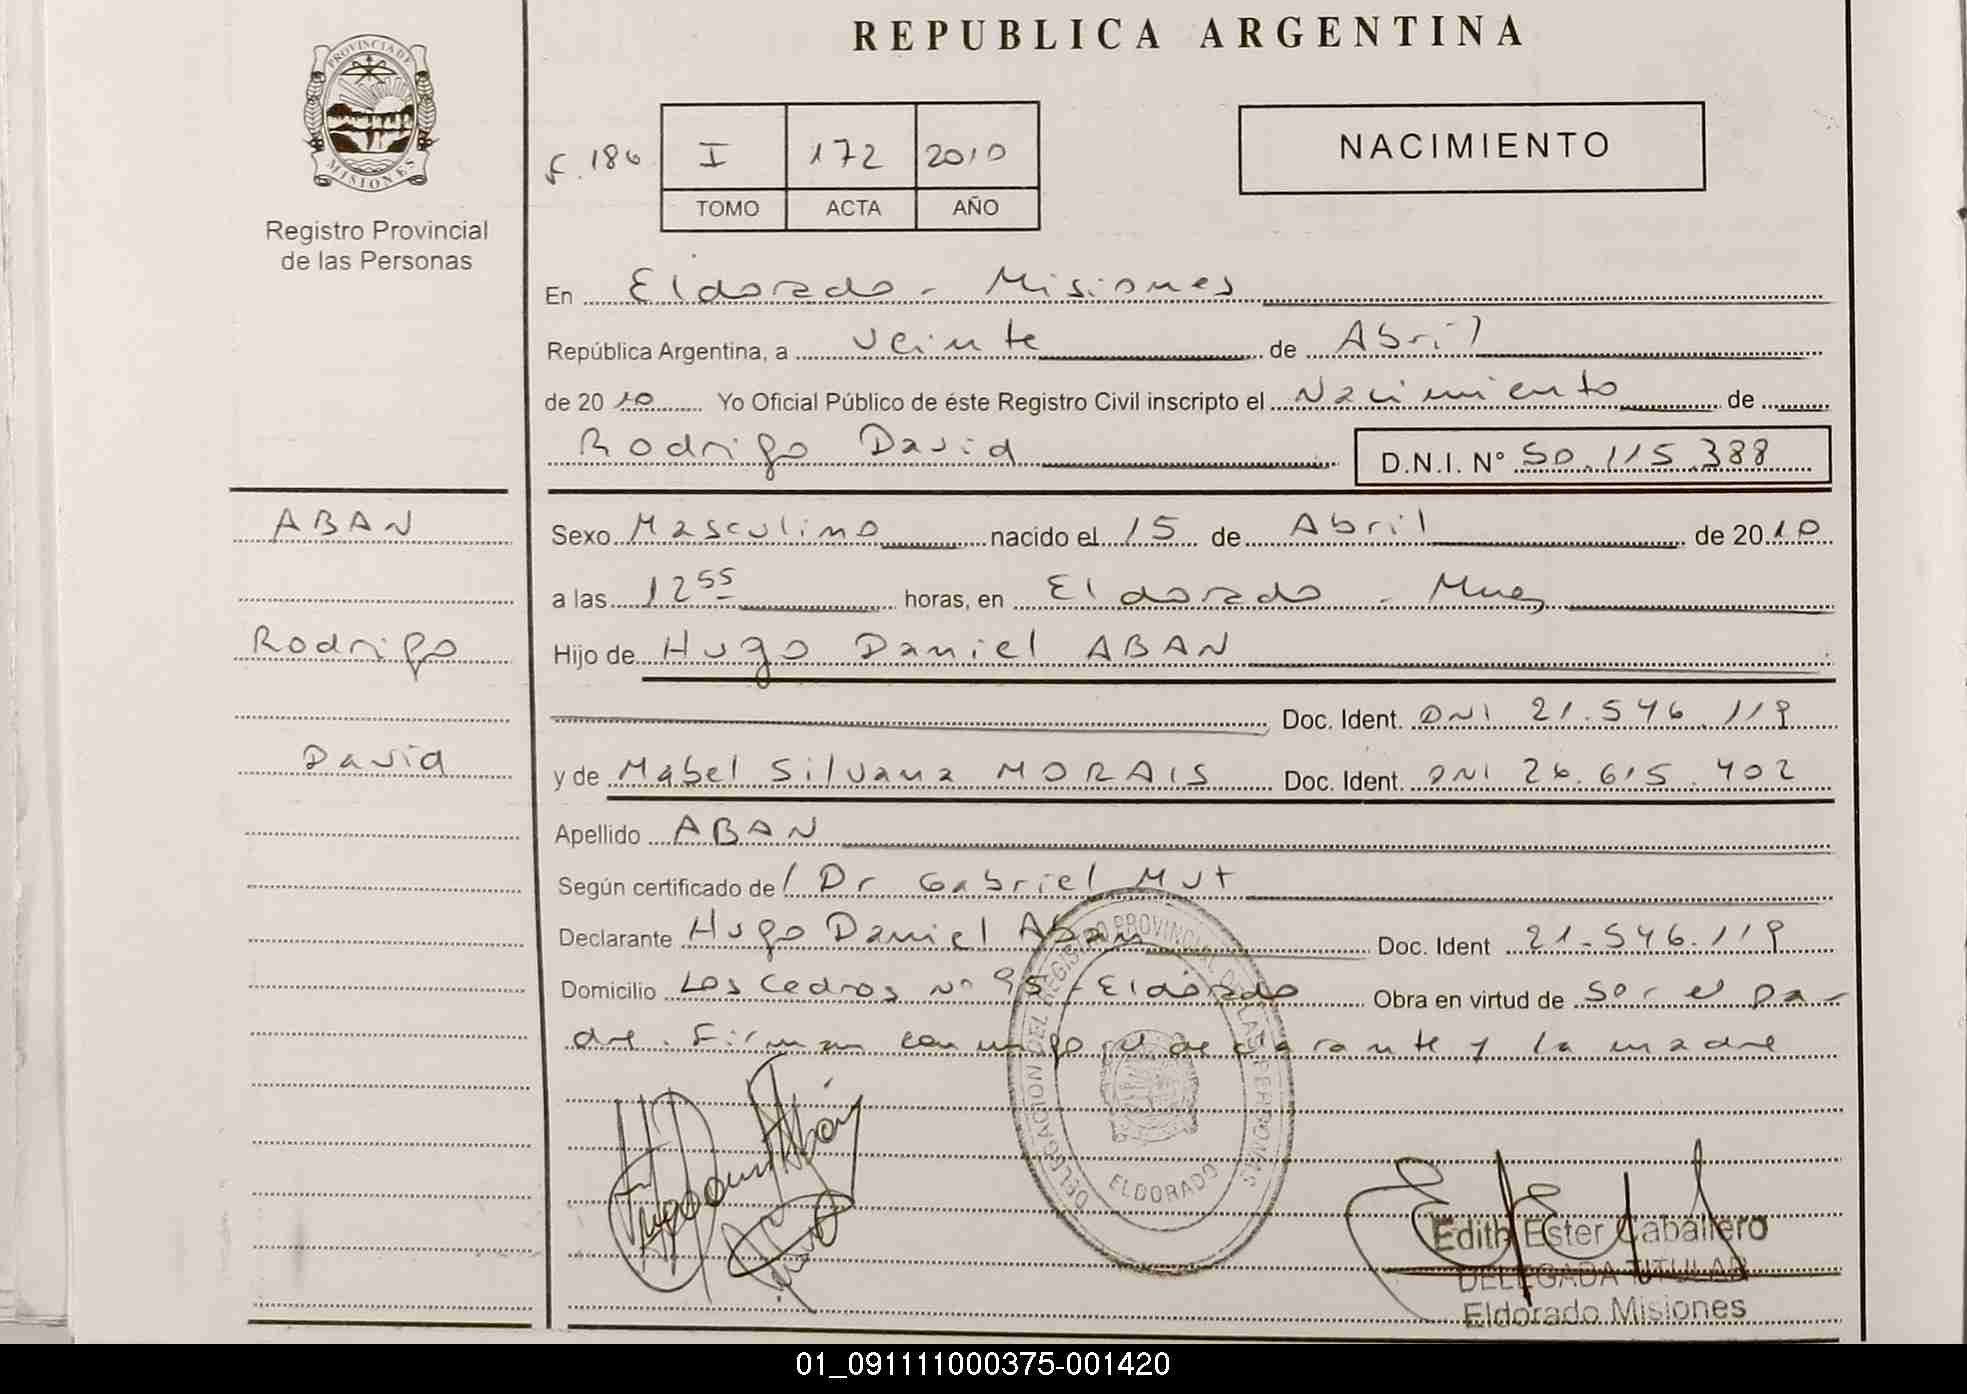 REPUBLICA ARGENTINA
PROVINCIA DE
MISIONES
Registro Provincial
de las Personas
F. 186
I 172 2010
TOMO ACTA AÑO
NACIMIENTO
En Eldorado - Misiones
República Argentina, a veinte de Abril
de 2010 Yo Oficial Público de éste Registro Civil inscripto el Nacimiento de
Rodrigo David D.N.I. N° 50.115.388
ABAN
Rodrigo
David
Sexo Masculino nacido el 15 de Abril de 2010
a las 12 55 horas, en Eldorado - Mnes
Hijo de Hugo Daniel ABAN
Doc. Ident. DNI 21.546.119
y de Mabel Silvana MORAIS Doc. Ident. DNI 26.615.402
Apellido ABAN
Según certificado de / Dr Gabriel Mut
Declarante Hugo Daniel Aban Doc. Ident 21.546.119
Domicilio Los Cedros N° 95 - Eldorado Obra en virtud de ser el pa-
dre. Firman conmigo el declarante y la madre
DELEGACION DEL REGISTRO PROVINCIAL DE LAS PERSONAS
ELDORADO
Edith Ester Caballero
DELEGADA TITULAR
Eldorado Misiones
01_091111000375-001420